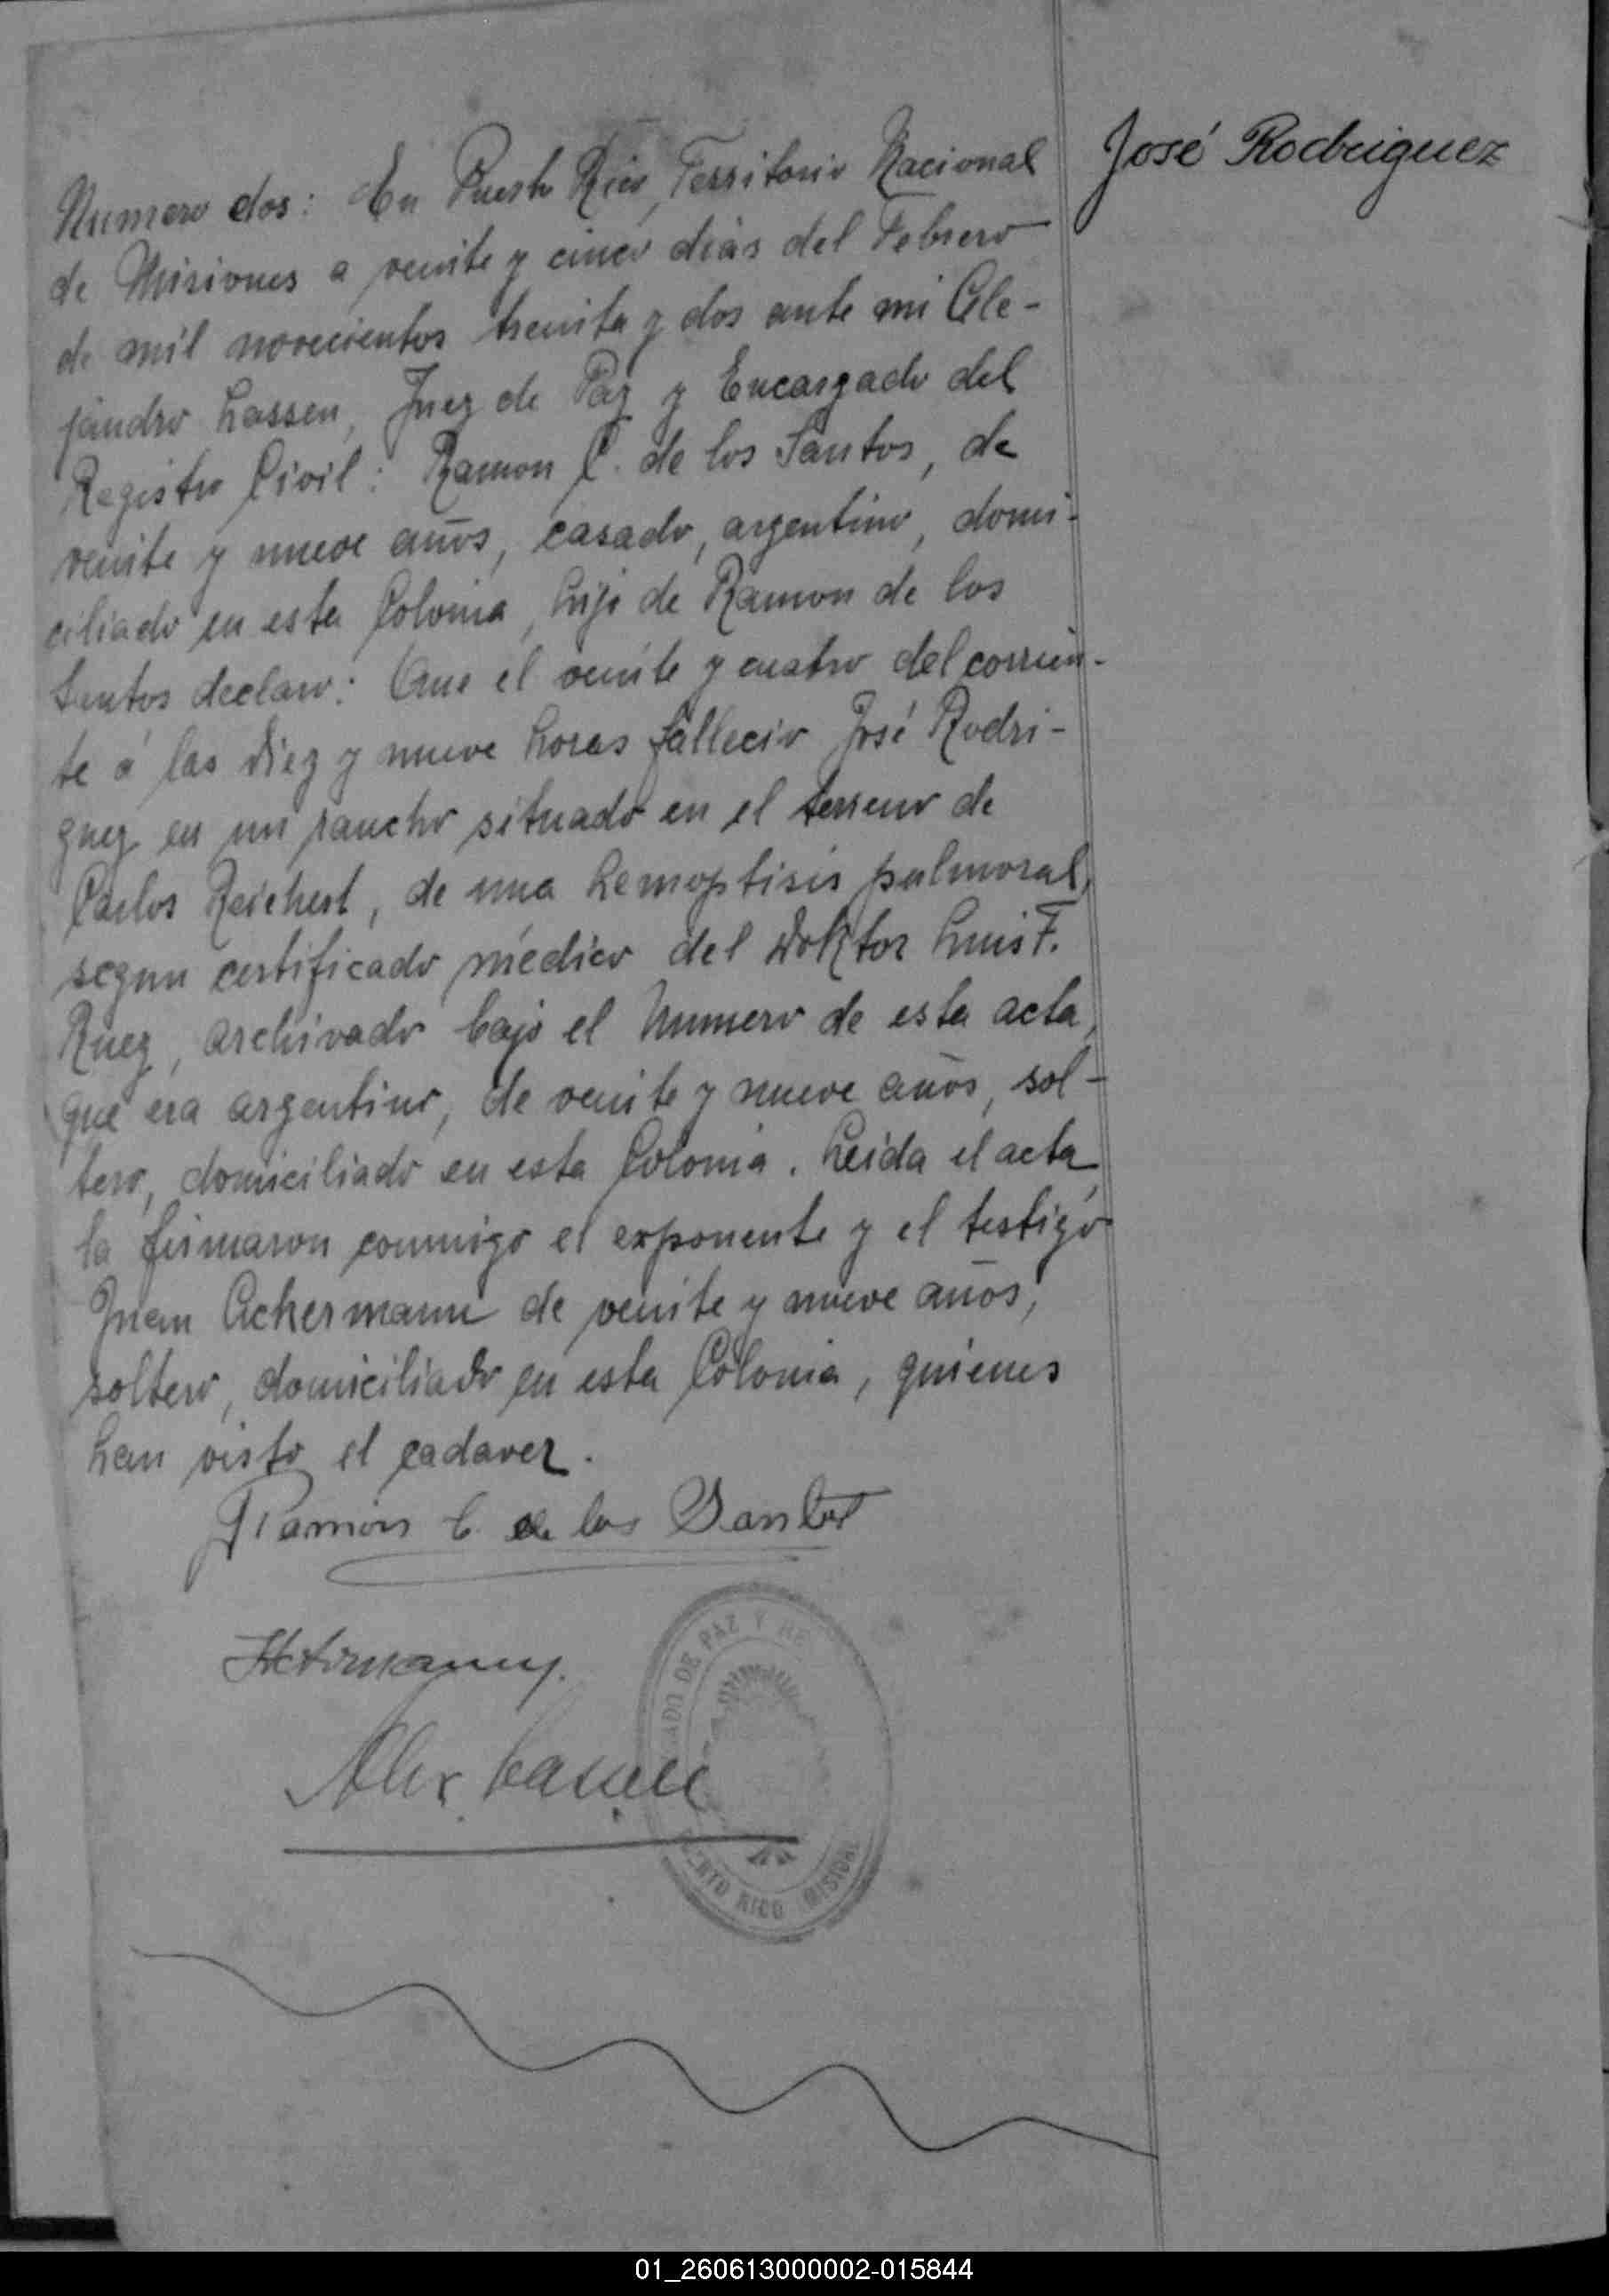 José Rodriguez
Numero dos: En Puerto Rico, Territorio Nacional
de Misiones a veinte y cinco dias del Febrero
de mil novecientos treinta y dos ante mi Ale-
jandro Lassen, Juez de Paz y Encargado del
Registro Civil: Ramon C. de los Santos, de
veinte y nueve años, casado, argentino, domi-
ciliado en esta Colonia, hijo de Ramon de los
Santos declaro: Que el veinte y cuatro del corrien-
te á las diez y nueve horas fallecio José Rodri-
guez en un rancho situado en el terreno de
Carlos Reichert, de una hemoptisis pulmoral,
segun certificado médico del Doktor Luis F.
Ruez, archivado bajo el Numero de esta acta,
que era argentino, de veinte y nueve años, sol-
tero, domiciliado en esta Colonia. Leida el acta,
la firmaron conmigo el exponente y el testigo
Juan Ackermann de veinte y nueve años,
soltero, domiciliado en esta Colonia, quienes
han visto el cadaver.
Ramón C. de los Santos
JAckermann.
Alex. Lassen
JUZGADO DE PAZ Y RE
PUERTO RICO MISIONES
01_260613000002-015844